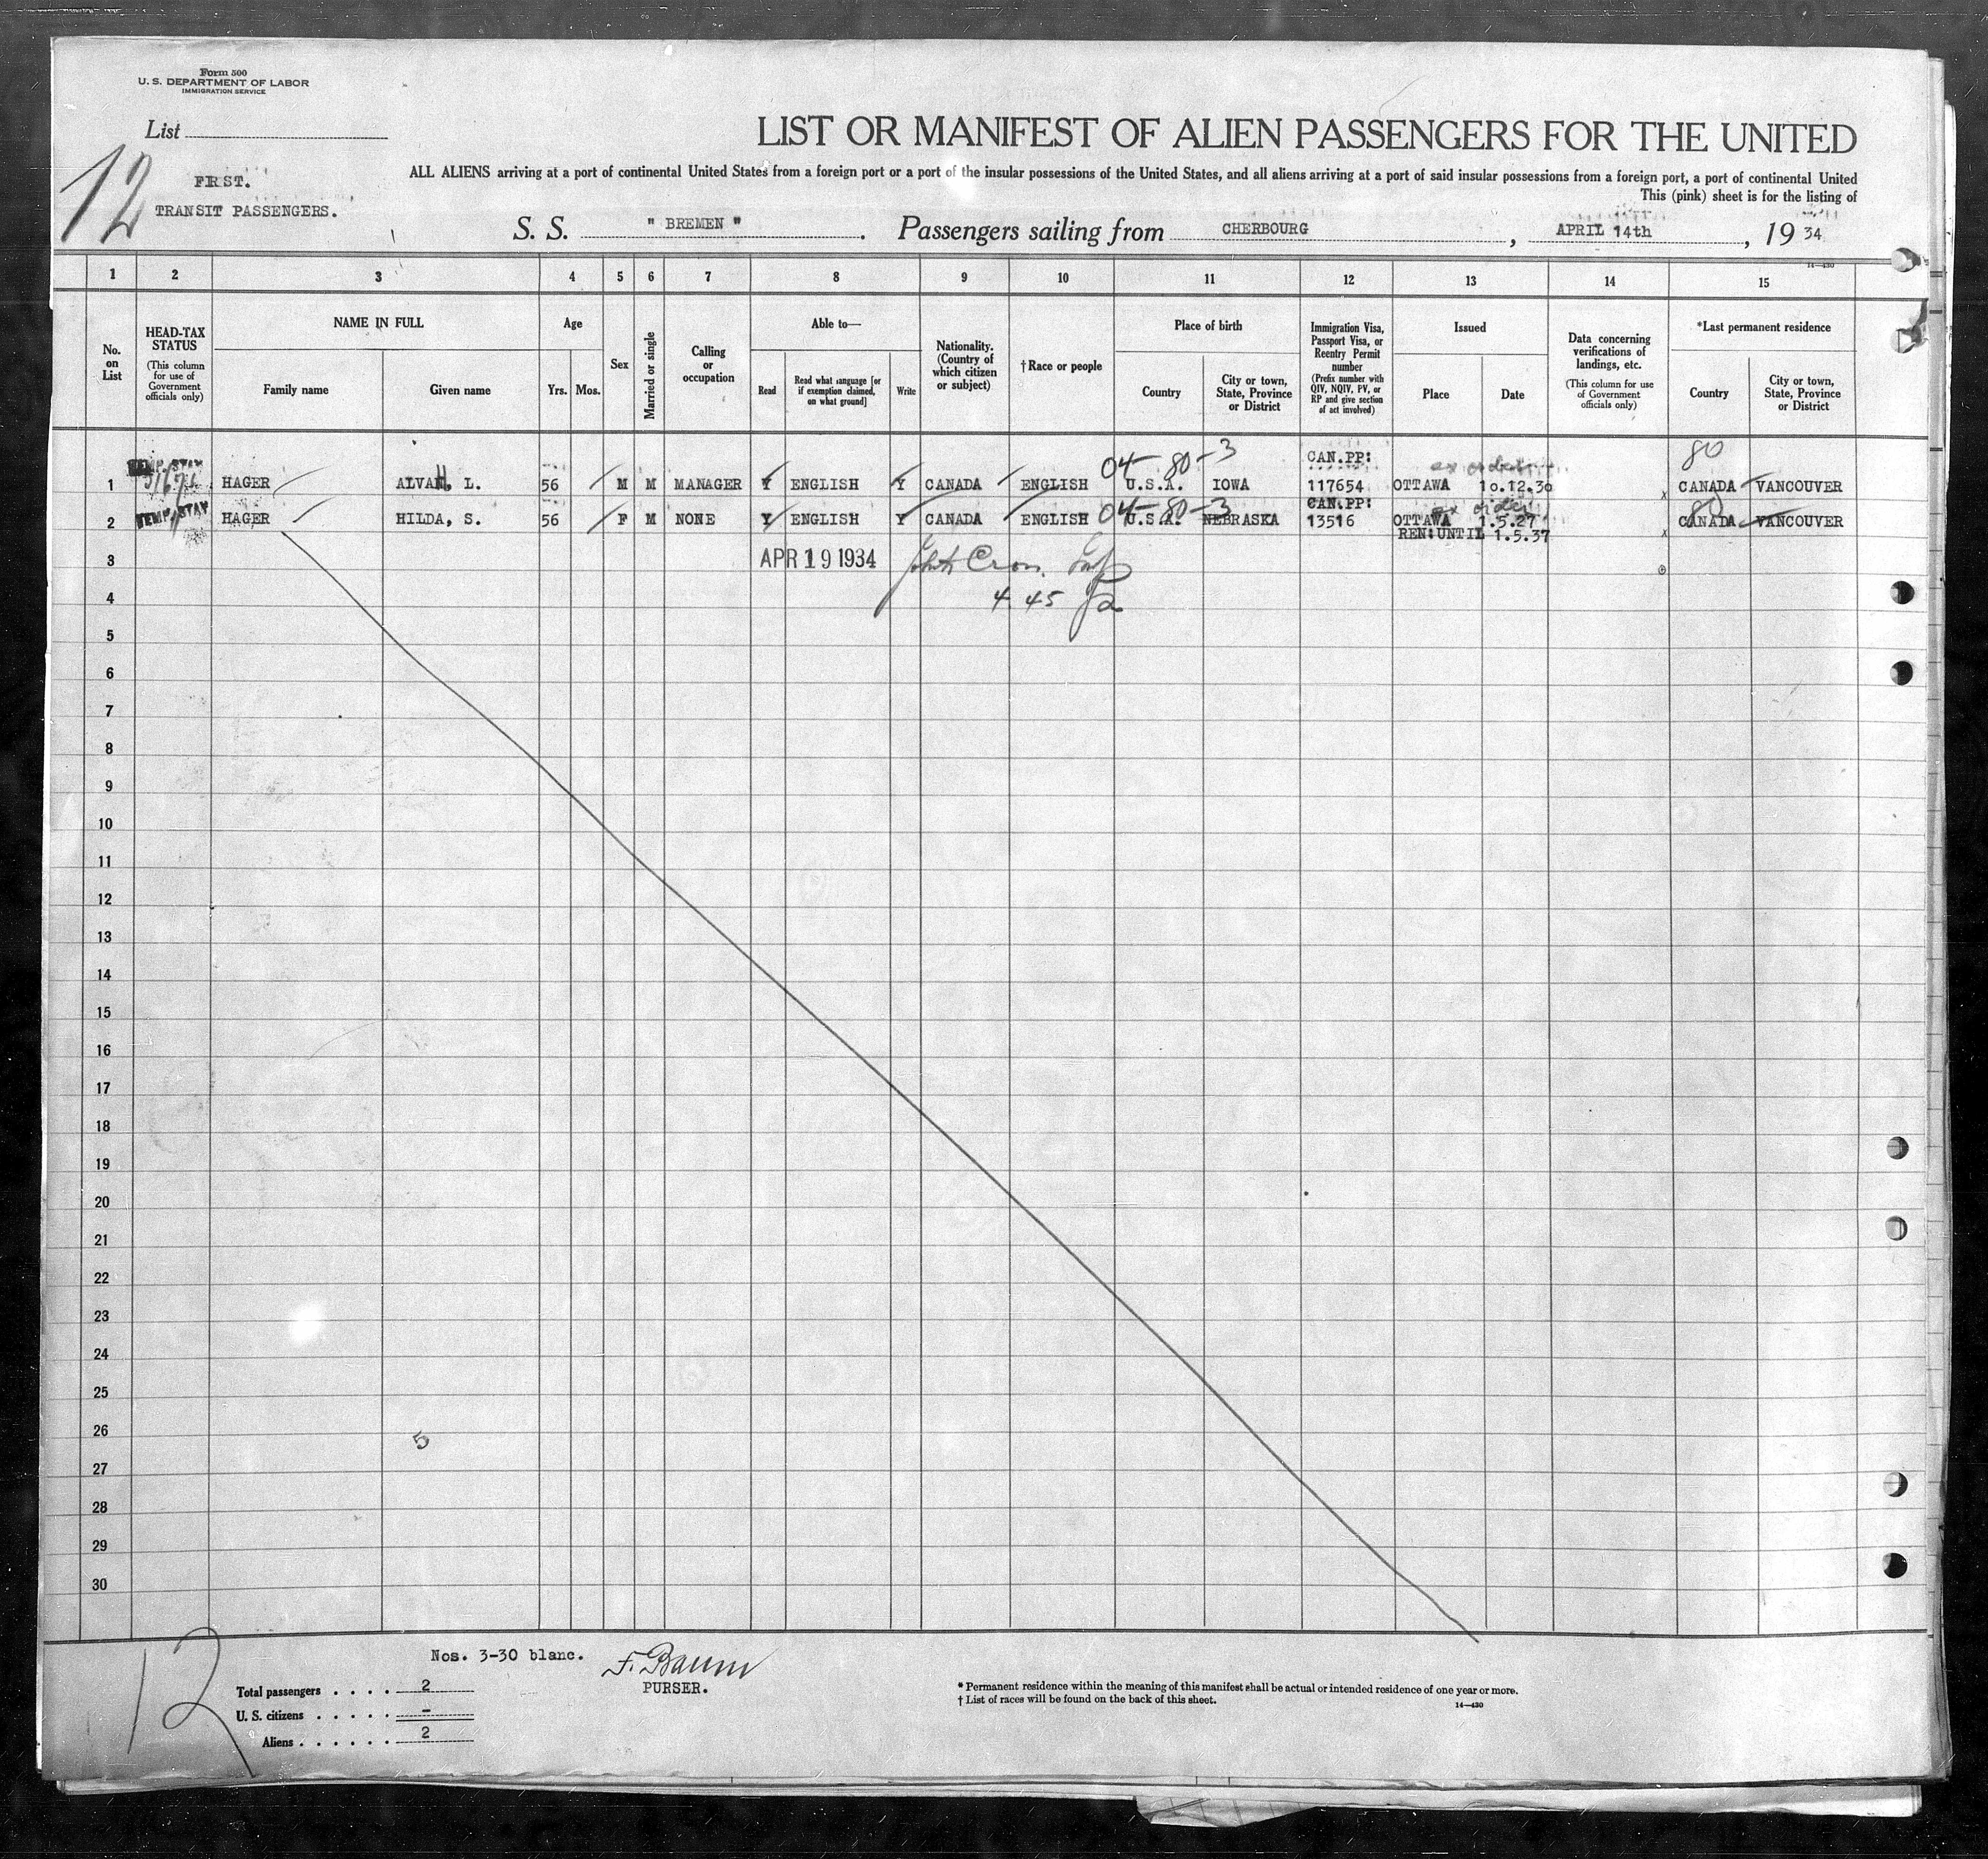 Form 500
U. S. DEPARTMENT OF LABOR
IMMIGRATION SERVICE
List
12
FRST.
TRANSIT PASSENGERS.
LIST OR MANIFEST OF ALIEN PASSENGERS FOR THE UNITED
ALL ALIENS arriving at a port of continental United States from a foreign port or a port of the insular possessions of the United States, and all aliens arriving at a port of said insular possessions from a foreign port, a port of continental United
This (pink) sheet is for the listing of
S. S. " BREMEN " . Passengers sailing from CHERBOURG , APRIL 14th , 19 34
14—430
1 2 3 4 5 6 7 8 9 10 11 12 13 14 15
No. on List
HEAD-TAX STATUS
(This column for use of Government officials only)
NAME IN FULL
Family name Given name
Age
Yrs. Mos.
Sex
Married or single
Calling or occupation
Able to—
Read
Read what language [or if exemption claimed, on what ground]
Write
Nationality. (Country of which citizen or subject)
†Race or people
Place of birth
Country
City or town, State, Province or District
Immigration Visa, Passport Visa, or Reentry Permit number
(Prefix number with QIV, NQIV, PV, or RP and give section of act involved)
Issued
Place Date
Data concerning verifications of landings, etc.
(This column for use of Government officials only)
*Last permanent residence
Country
City or town, State, Province or District
TEMP. STAY 04-80-3 CAN.PP: 80
1 HAGER ALVAH, L. 56 M M MANAGER Y ENGLISH Y CANADA ENGLISH U.S.A. IOWA 117654 OTTAWA 10.12.30 x CANADA VANCOUVER
TEMP. STAY 04-80-3 CAN.PP: 80
2 HAGER HILDA, S. 56 F M NONE Y ENGLISH Y CANADA ENGLISH U.S.A. NEBRASKA 13516 OTTAWA 1.5.27 CANADA VANCOUVER
REN:UNTIL 1.5.37 x
3 APR 19 1934
4 4.45
5
6
7
8
9
10
11
12
13
14
15
16
17
18
19
20
21
22
23
24
25
26 5
27
28
29
30
12
Nos. 3-30 blanc.
F. Baum
PURSER.
Total passengers . . . . 2
U. S. citizens . . . . . -
Aliens . . . . . . 2
* Permanent residence within the meaning of this manifest shall be actual or intended residence of one year or more.
† List of races will be found on the back of this sheet.
14—430